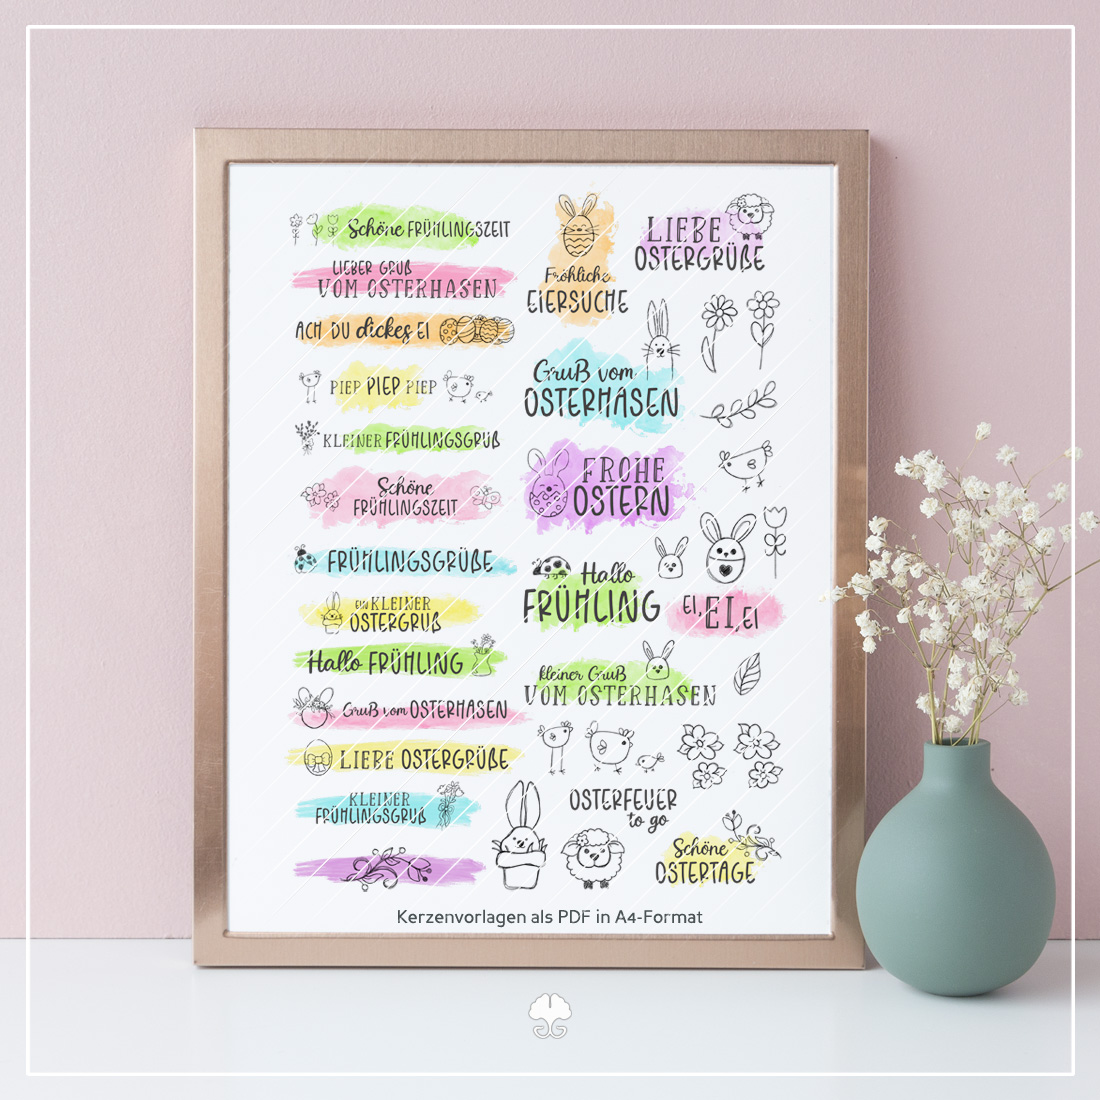 Schöne FRÜHLINGSZEIT
LIEBER GRUß
VOM OSTERHASEN
ACH DU dickes EI
PIEP PIEP PIEP
KLEINER FRÜHLINGSGRUß
Schöne
FRÜHLINGSZEIT
FRÜHLINGSGRÜßE
ein KLEINER
OSTERGRUß
Hallo FRÜHLING
Gruß vom OSTERHASEN
LIEBE OSTERGRÜßE
KLEINER
FRÜHLINGSGRUß
Fröhliche
EIERSUCHE
LIEBE
OSTERGRÜßE
Gruß vom
OSTERHASEN
FROHE
OSTERN
Hallo
FRÜHLING
EI, EI, EI
kleiner Gruß
VOM OSTERHASEN
OSTERFEUER
to go
Schöne
OSTERTAGE
Kerzenvorlagen als PDF in A4-Format